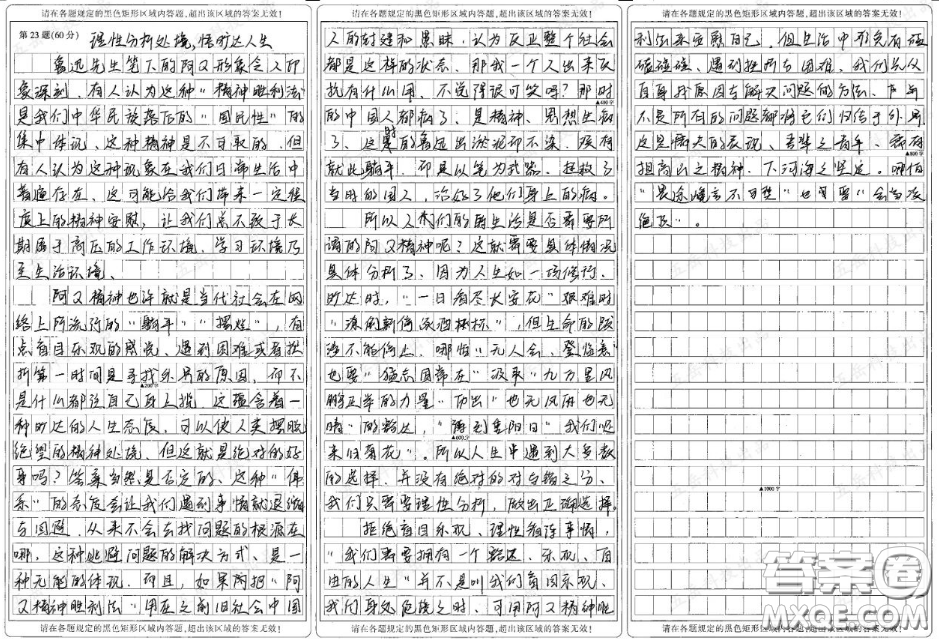 请在各题规定的黑色矩形区域内答题,超出该区域的答案无效!
第23题(60分) 理性分析处境,悟旷达人生
鲁迅先生笔下的阿Q形象令人印
象深刻,有人认为这种"精神胜利法"
是我们中华民族落后的"国民性"的
集中体现,这种精神是不可取的,但
有人认为这种现象在我们日常生活中
普遍存在,这可能给我们带来一定程
度上的精神安慰,让我们总不致于长
期居于高压的工作环境、学习环境乃
至生活环境、
阿Q精神也许就是当代社会在网
络上所流行的"躺平""摆烂",有
点盲目乐观的感觉、遇到困难或者挫
折第一时间是寻找外界的原因,而不
▲200字
是什么都往自己身上揽,这蕴含着一
种旷达的人生态度,可以使人类摆脱
绝望的精神处境、但这就是绝对的好
事吗?答案当然是否定的、这种"佛
系"的态度会让我们遇到事情就退缩
与回避,从来不会去找问题的根源在
哪,这种逃避问题的解决方式、是一
种无能的体现,而且,如果所把"阿
Q精神胜利法"用在之前旧社会中国
请在各题规定的黑色矩形区域内答题,超出该区域的答案无效!
请在各题规定的黑色矩形区域内答题,超出该区域的答案无效!
人的封建和愚昧,认为反正整个社会
都是这样的状态、那我一个人出来反
抗有什么用、不觉得很可笑吗?那时
▲400字
的中国人都病了、是精神、思想生病
了、这时的鲁迅出淤泥而不染,没有
就此躺平,而是以笔为武器、拯救了
当时的国人,治好了他们身上的病。
所以人们的生活是否需要所
谓的阿Q精神呢?这就需要具体情况
具体分析了、因为人生如一场修行、
旷达时,"一日看尽长安花"艰难时
"潦倒新停浊酒杯",但生命的跋
涉不能停止,哪怕"无人会、登临意"
也要"猛志固常在"吸来"九万里风
鹏正举的力量"历出"也无风雨也无
晴"的豁达,"待到重阳日"我们"还
▲600字
来就菊花"。所以人生中遇到大多数
的选择,并没有绝对的对与错之分、
我们只需要理性分析,做出正确选择。
拒绝盲目乐观、理性看待事情,
"我们需要拥有一个豁达、乐观、自
由的人生"并不是叫我们盲目乐观、
我们身处危境之时、可用阿Q精神胜
请在各题规定的黑色矩形区域内答题,超出该区域的答案无效!
请在各题规定的黑色矩形区域内答题,超出该区域的答案无效!
利法来安慰自己,但生活中难免有磕
磕碰碰、遇到挫折与困难、我们先从
自身找原因与解决问题的方法、
不是所有的问题都将它们归结于外界
▲800字
▲1000字
请在各题规定的黑色矩形区域内答题,超出该区域的答案无效!
答案圈
MXQE.COM